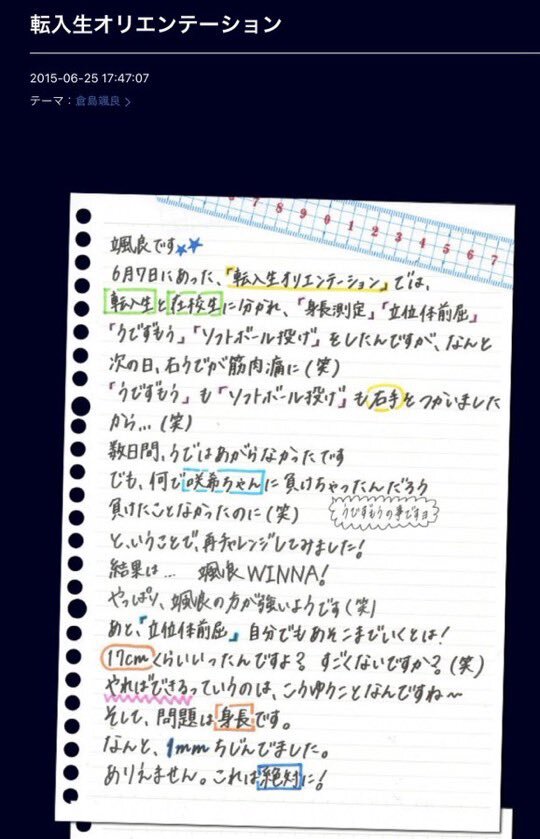 転入生オリエンテーション
2015-06-25 17:47:07
テーマ：倉島颯良
6 7 8 9 0 1 2 3 4 5 6 7
颯良です★★
6月7日にあった、「転入生オリエンテーション」では、
転入生と在校生に分かれ、「身長測定」「立位体前屈」
「うでずもう」「ソフトボール投げ」をしたんですが、なんと
次の日、右うでが筋肉痛に(笑)
「うでずもう」も「ソフトボール投げ」も右手をつかいました
から…(笑)
数日間、うではあがらなかったです
でも、何で咲希ちゃんに負けちゃったんだろう
負けたことなかったのに(笑)
うでずもうの事ですヨ
と、いうことで、再チャレンジしてみました!
結果は… 颯良WINNA!
やっぱり、颯良の方が強いようです(笑)
あと、「立位体前屈」自分でもあそこまでいくとは!
17cmくらいいったんですよ? すごくないですか?(笑)
やればできるっていうのは、こうゆうことなんですね〜
そして、問題は身長です。
なんと、1mmちじんでました。
ありえません。これは絶対に!